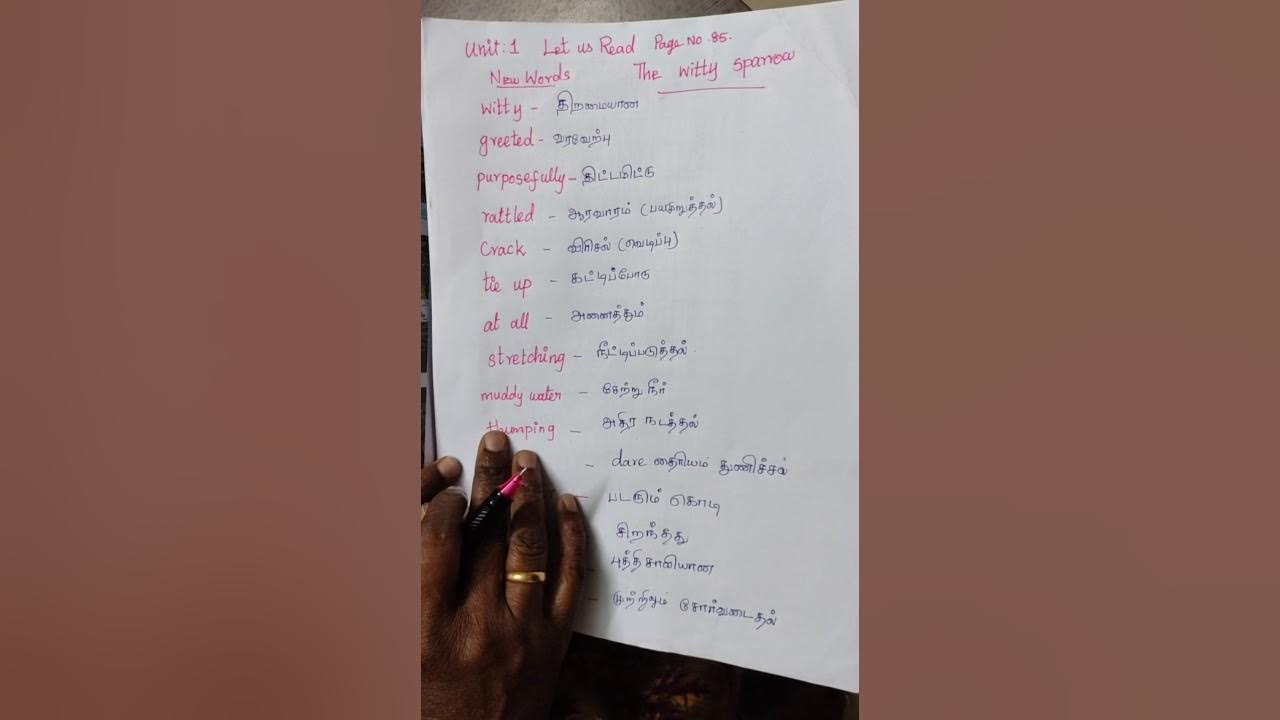 Unit: 1 Let us Read Page No. 85.
New Words The witty sparrow
witty - திறமையான
greeted - வரவேற்பு
purposefully - திட்டமிட்டு
rattled - ஆரவாரம் (பயமுறுத்தல்)
Crack - விரிசல் (வெடிப்பு)
tie up - கட்டிப்போடு
at all - அனைத்தும்
stretching - நீட்டிப்படுத்தல்.
muddy water - சேற்று நீர்
thumping - அதிர நடத்தல்
- dare தைரியம் துணிச்சல்
- படரும் கொடி
சிறந்தது
- புத்திசாலியான
- முற்றிலும் சோர்வடைதல்